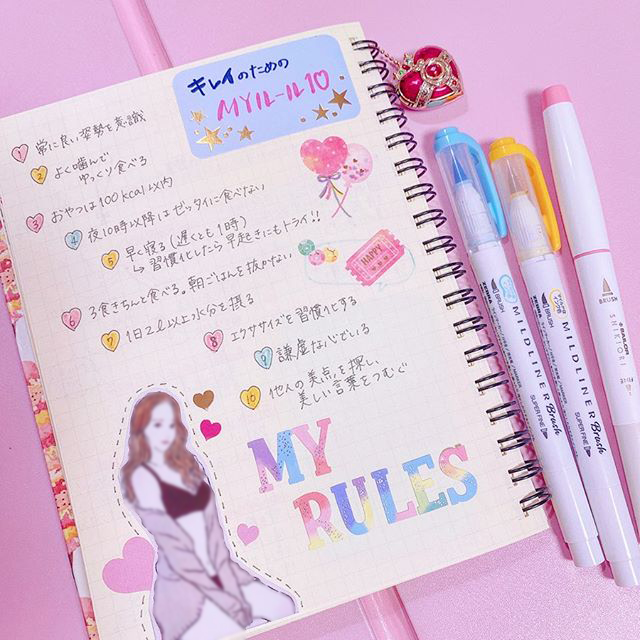 キレイのための
MYルール10
1 常に良い姿勢を意識
2 よく噛んで
ゆっくり食べる
3 おやつは100kcal以内
4 夜10時以降はゼッタイに食べない
5 早く寝る(遅くとも1時)
→習慣化したら早起きにもトライ!!
6 3食きちんと食べる。朝ごはんを抜かない
7 1日2l以上水分を摂る
8 エクササイズを習慣化する
9 謙虚な心でいる
10 他人の美点を探し、
美しい言葉をつむぐ
HAPPY
MY
RULES
BRUSH MILDLINER Brush SUPER FINE
BRUSH MILDLINER Brush SUPER FINE
BRUSH SAILOR SHIKIORI